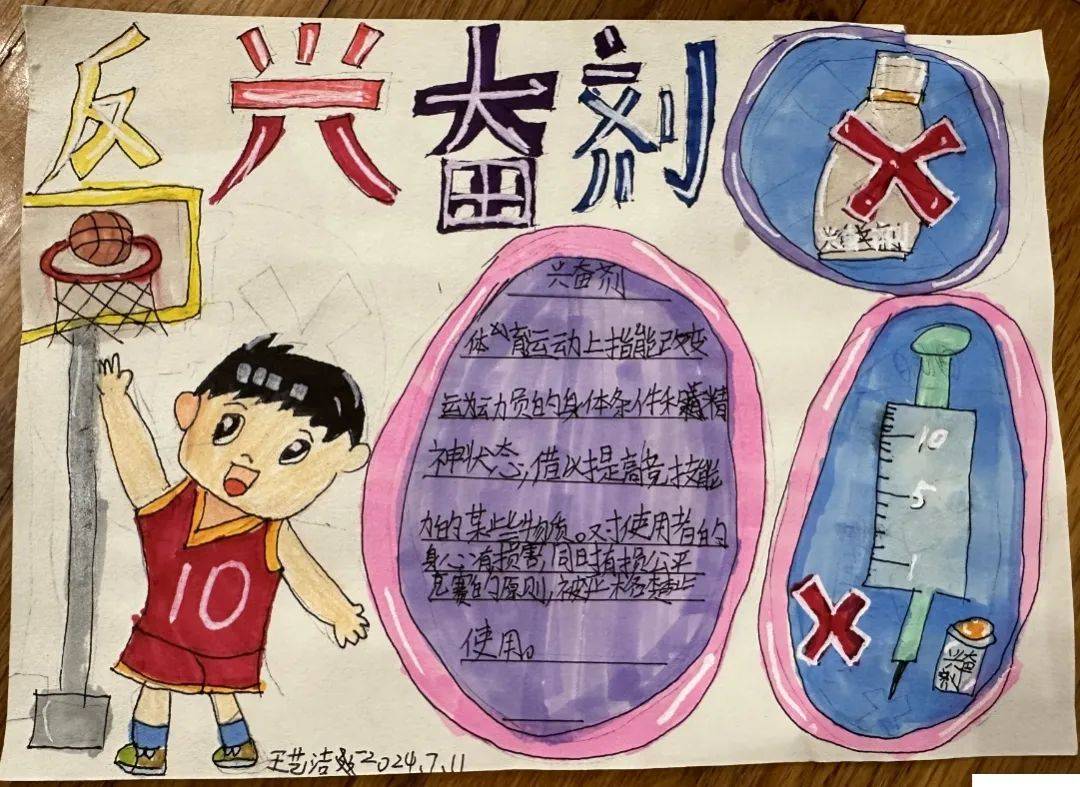 反兴奋剂
兴奋剂
兴奋剂
体育运动上指能改变
运动员的身体条件和精
神状态,借以提高竞技能
力的某些物质。对使用者的
身心有损害,同时有损公平
竞赛的原则,被严格禁止
使用。
10
5
1
兴奋剂
10
王艺洁 2024.7.11